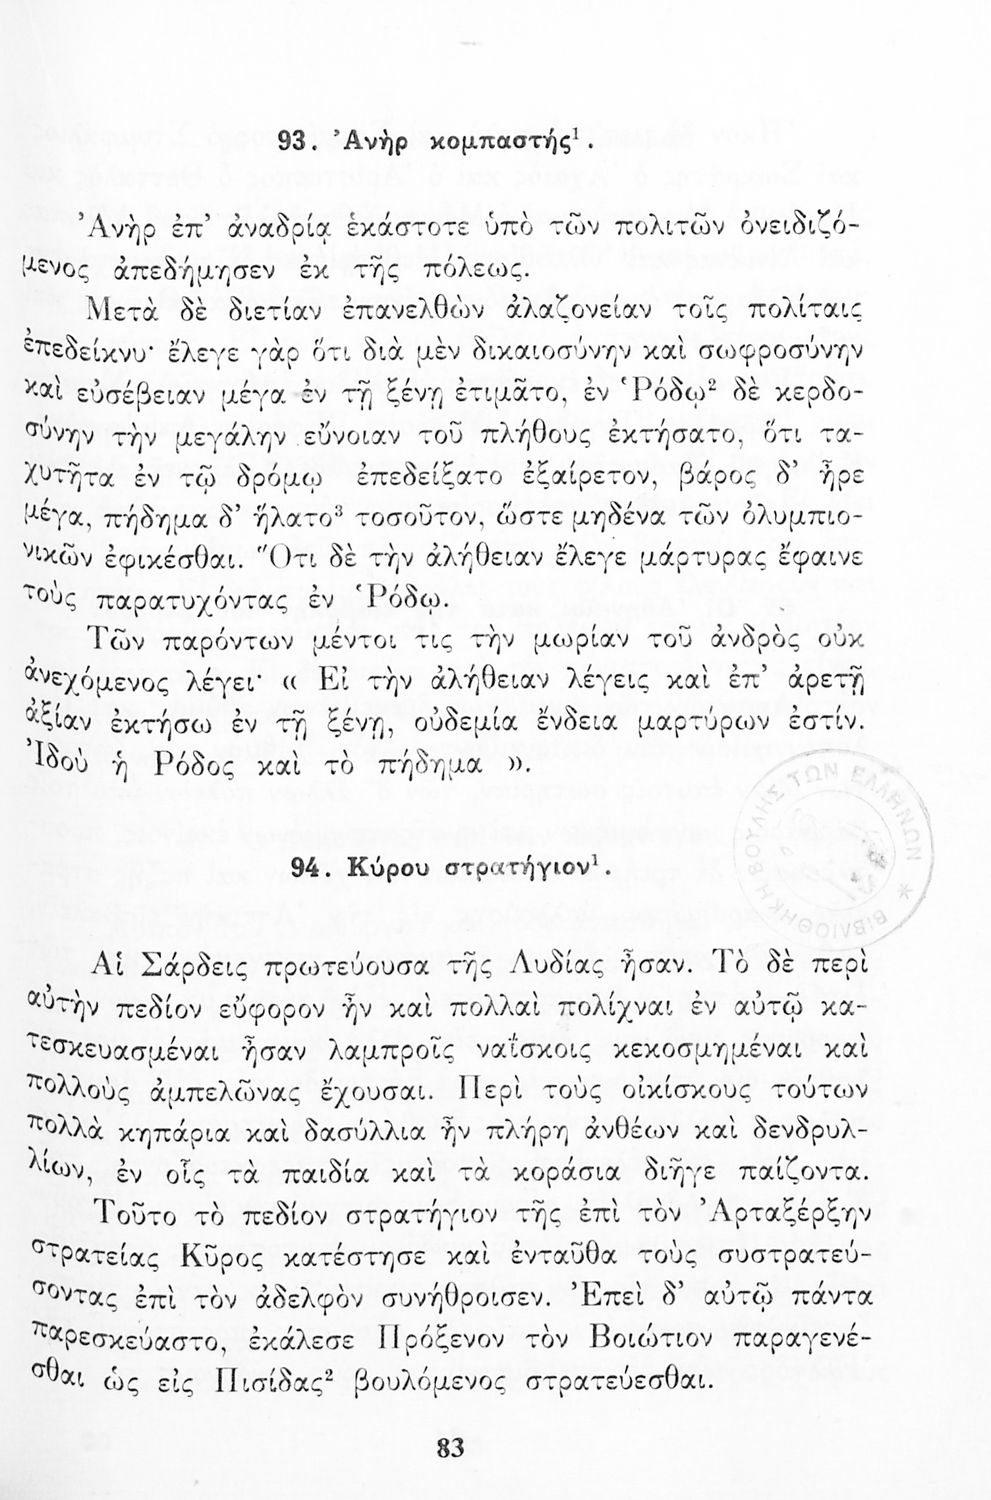 93. Ἀνὴρ κομπαστής¹.
Ἀνὴρ ἐπ’ ἀναδρίᾳ ἑκάστοτε ὑπὸ τῶν πολιτῶν ὀνειδιζό-
μενος ἀπεδήμησεν ἐκ τῆς πόλεως.
Μετὰ δὲ διετίαν ἐπανελθὼν ἀλαζονείαν τοῖς πολίταις
ἐπεδείκνυ· ἔλεγε γὰρ ὅτι διὰ μὲν δικαιοσύνην καὶ σωφροσύνην
καὶ εὐσέβειαν μέγα ἐν τῇ ξένῃ ἐτιμᾶτο, ἐν Ῥόδῳ² δὲ κερδο-
σύνην τὴν μεγάλην εὔνοιαν τοῦ πλήθους ἐκτήσατο, ὅτι τα-
χυτῆτα ἐν τῷ δρόμῳ ἐπεδείξατο ἐξαίρετον, βάρος δ’ ἦρε
μέγα, πήδημα δ’ ἥλατο³ τοσοῦτον, ὥστε μηδένα τῶν ὀλυμπιο-
νικῶν ἐφικέσθαι. Ὅτι δὲ τὴν ἀλήθειαν ἔλεγε μάρτυρας ἔφαινε
τοὺς παρατυχόντας ἐν Ῥόδῳ.
Τῶν παρόντων μέντοι τις τὴν μωρίαν τοῦ ἀνδρὸς οὐκ
ἀνεχόμενος λέγει· « Εἰ τὴν ἀλήθειαν λέγεις καὶ ἐπ’ ἀρετῇ
ἀξίαν ἐκτήσω ἐν τῇ ξένῃ, οὐδεμία ἔνδεια μαρτύρων ἐστίν.
Ἰδοὺ ἡ Ρόδος καὶ τὸ πήδημα ».
ΒΙΒΛΙΟΘΗΚΗ ΒΟΥΛΗΣ ΤΩΝ ΕΛΛΗΝΩΝ *
94. Κύρου στρατήγιον¹.
Αἱ Σάρδεις πρωτεύουσα τῆς Λυδίας ἦσαν. Τὸ δὲ περὶ
αὐτὴν πεδίον εὔφορον ἦν καὶ πολλαὶ πολίχναι ἐν αὐτῷ κα-
τεσκευασμέναι ἦσαν λαμπροῖς ναΐσκοις κεκοσμημέναι καὶ
πολλοὺς ἀμπελῶνας ἔχουσαι. Περὶ τοὺς οἰκίσκους τούτων
πολλὰ κηπάρια καὶ δασύλλια ἦν πλήρη ἀνθέων καὶ δενδρυλ-
λίων, ἐν οἷς τὰ παιδία καὶ τὰ κοράσια διῆγε παίζοντα.
Τοῦτο τὸ πεδίον στρατήγιον τῆς ἐπὶ τὸν Ἀρταξέρξην
στρατείας Κῦρος κατέστησε καὶ ἐνταῦθα τοὺς συστρατεύ-
σοντας ἐπὶ τὸν ἀδελφὸν συνήθροισεν. Ἐπεὶ δ’ αὐτῷ πάντα
παρεσκεύαστο, ἐκάλεσε Πρόξενον τὸν Βοιώτιον παραγενέ-
σθαι ὡς εἰς Πισίδας² βουλόμενος στρατεύεσθαι.
83